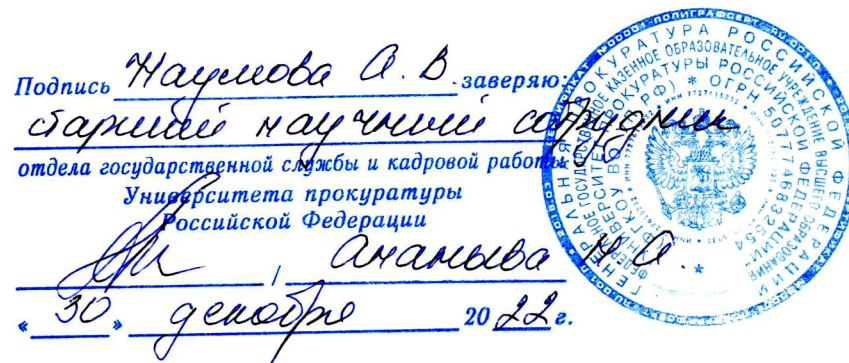 Подпись Наумова А. В. заверяю:
старший научный сотрудник
отдела государственной службы и кадровой работы
Университета прокуратуры
Российской Федерации
/ Ананьева Н О.
« 30 » декабря 20 22 г.
ГЕНЕРАЛЬНАЯ ПРОКУРАТУРА РОССИЙСКОЙ ФЕДЕРАЦИИ
ФЕДЕРАЛЬНОЕ ГОСУДАРСТВЕННОЕ КАЗЕННОЕ ОБРАЗОВАТЕЛЬНОЕ УЧРЕЖДЕНИЕ ВЫСШЕГО ОБРАЗОВАНИЯ
УНИВЕРСИТЕТ ПРОКУРАТУРЫ РОССИЙСКОЙ ФЕДЕРАЦИИ
* ОГРН